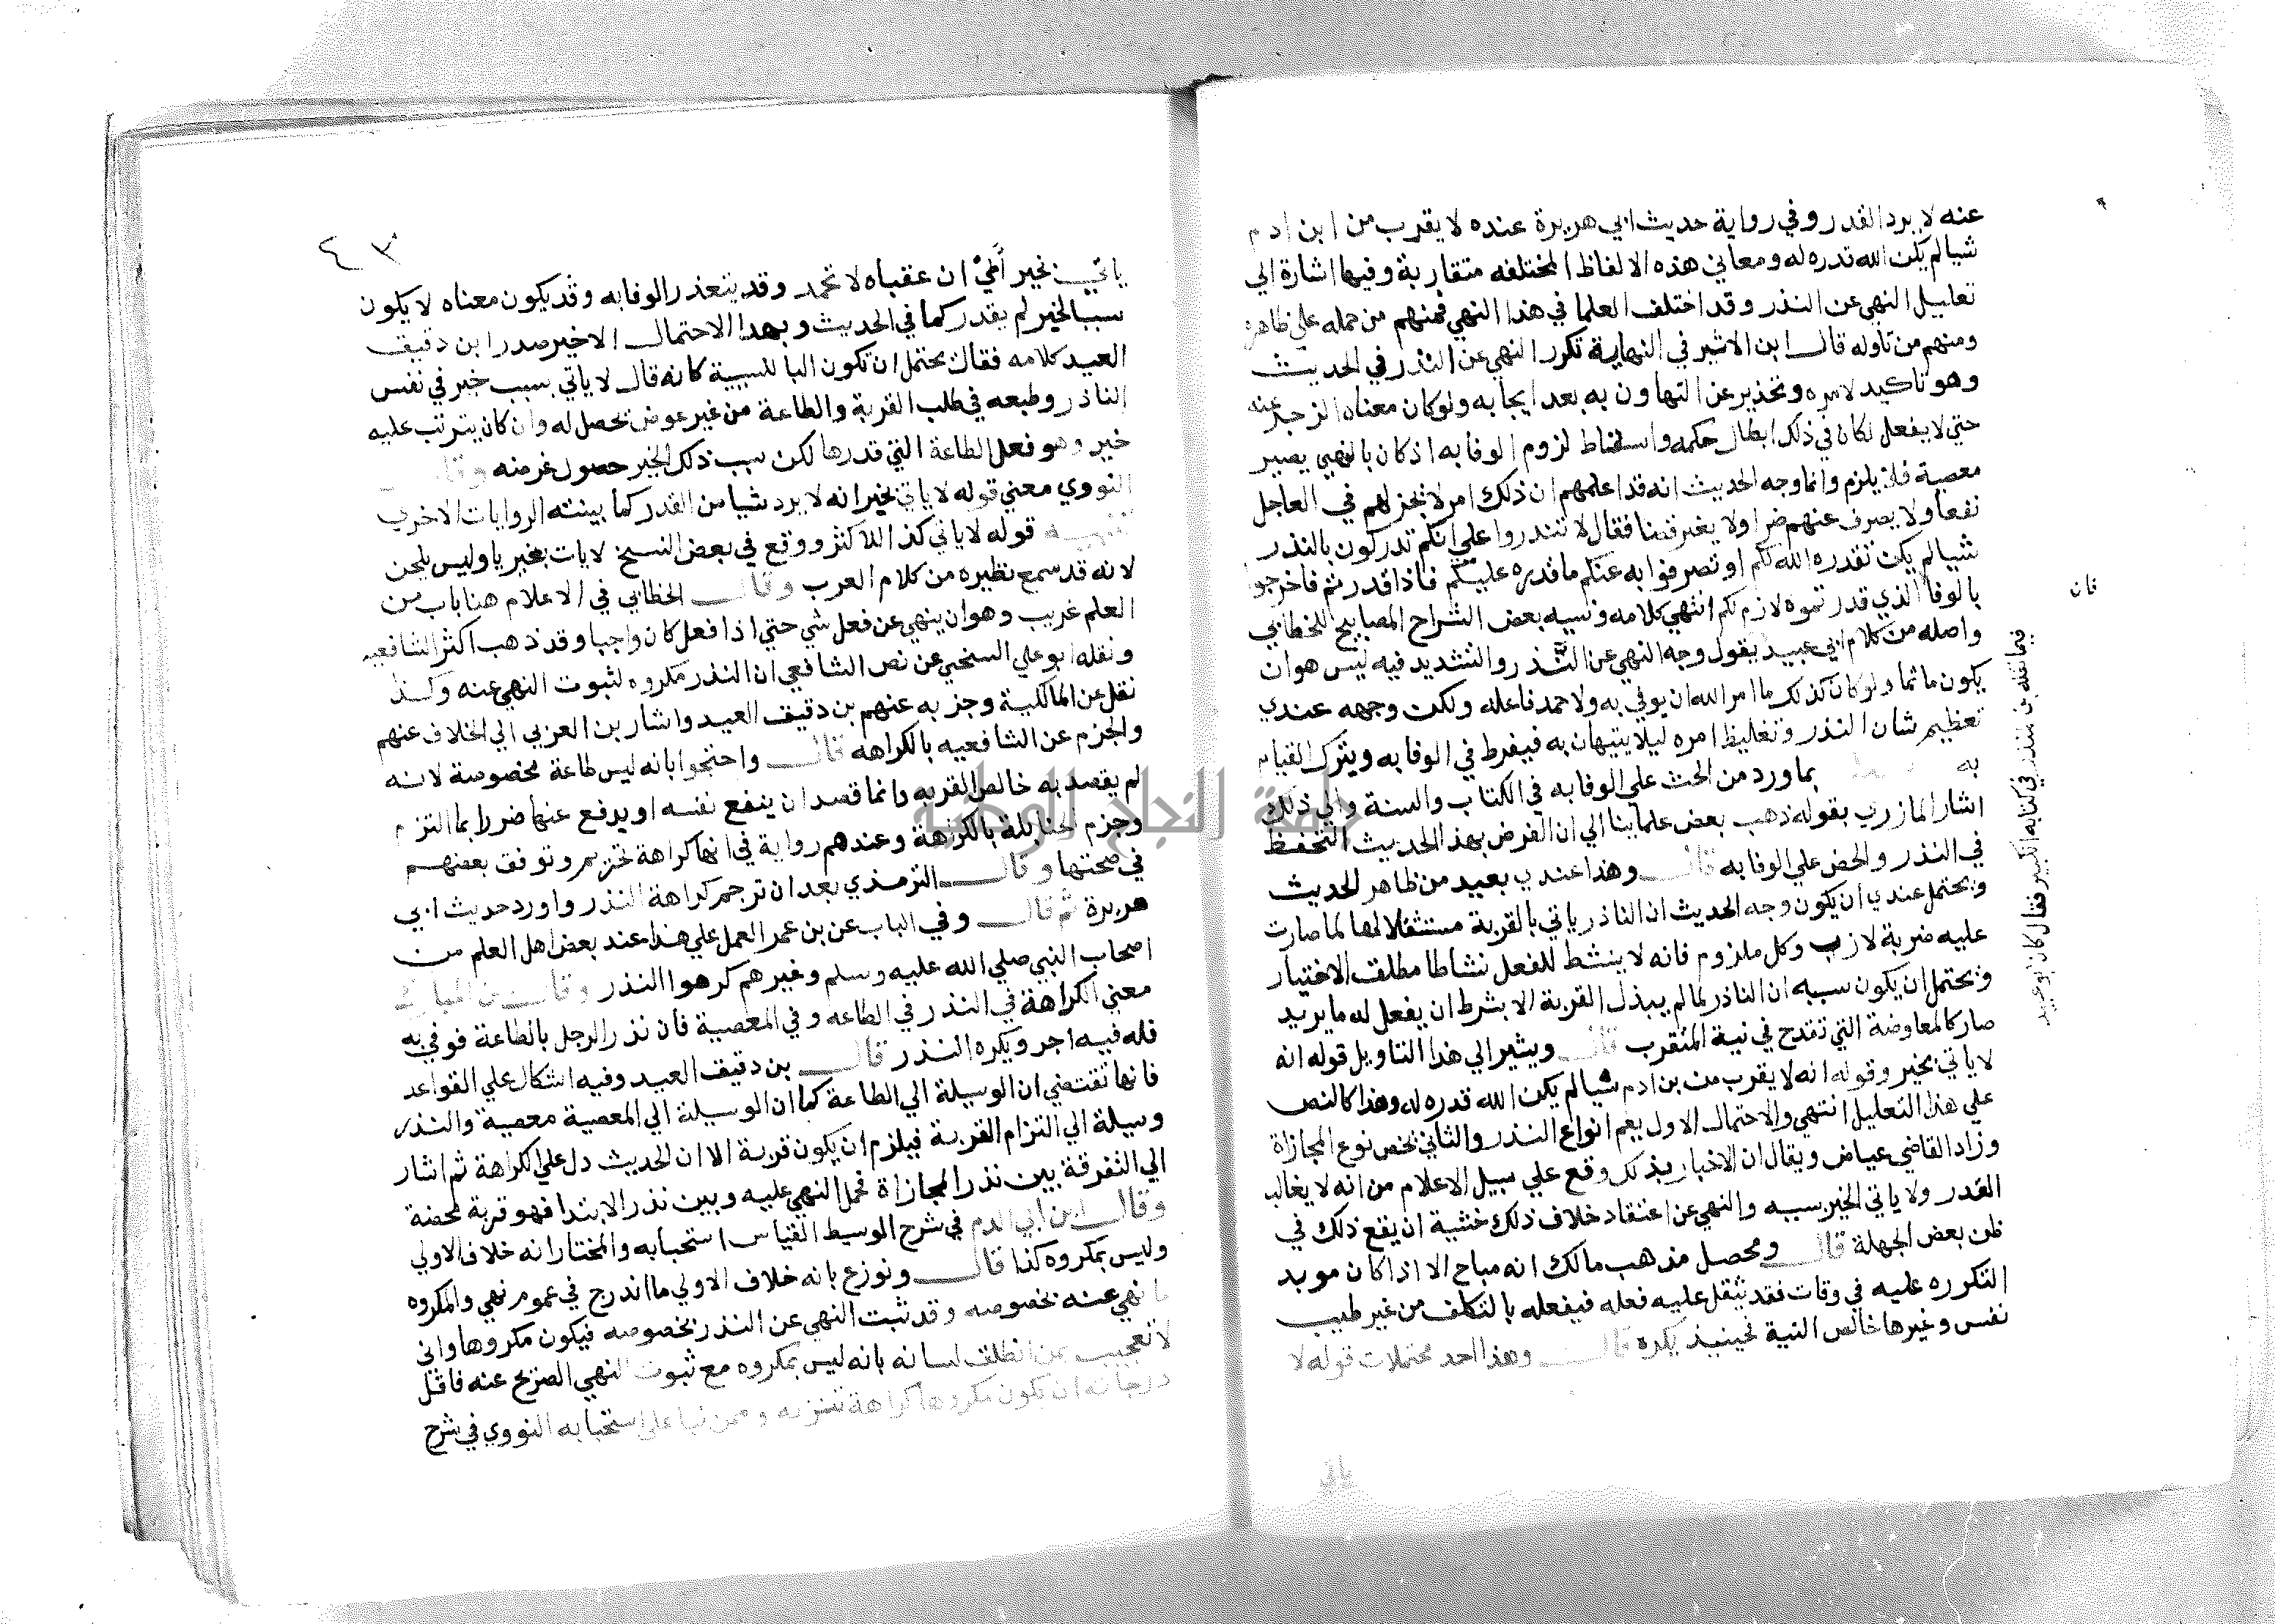 عنه لا يرد القدر وفي رواية حديث ابي هريرة عنده لا يقرب من ابن ادم
شيا لم يكن الله قدره له ومعاني هذه الالفاظ المختلفه متقاربة وفيها اشارة الي
تعليل النهي عن النذر وقد اختلف العلما في هذا النهي فمنهم من حمله علي ظاهره
ومنهم من تاوله قال ابن الاثير في النهاية تكرر النهي عن النذر في الحديث
وهو تاكيد لامره وتحذير عن التهاون به بعد ايجابه ولو كان معناه الزجر عنه
حتي لا يفعل لكان في ذلك ابطال حكمه واسقاط لزوم الوفا به اذ كان بالنهي يصير
معصية فلا يلزم وانما وجه الحديث انه قد اعلمهم ان ذلك امر لا يجز لهم في العاجل
نفعا ولا يصرف عنهم ضرا ولا يغير قضا فقال لا تنذروا علي انكم تدركون بالنذر
شيا لم يكن تقدره الله لكم او تصرفوا به عنكم ما قدره عليكم فاذا قدرتم فاخرجوا
بالوفا الذي قدرتموه لازم لكم انتهي كلامه ونسبه بعض الشراح المصابيح للخطابي
واصله من كلام ابي عبيد يقول وجه النهي عن النذر والتشديد فيه ليس هو ان
يكون ماثما ولو كان كذلك ما امر الله ان يوفي به ولا حمد فاعله ولكن وجهه عندي
تعظيم شان النذر وتغليظ امره ليلا يتهان به فيفرط في الوفا به ويترك القيام
به بما ورد من الحث علي الوفا به في الكتاب والسنة والي ذلك
اشار المازري بقوله ذهب بعض علماينا الي ان الغرض بهذا الحديث التحفظ
في النذر والحض علي الوفا به قال وهذا عندي بعيد من ظاهر الحديث
ويحتمل عندي ان يكون وجه الحديث ان الناذر ياتي بالقربة مستثقلا لها لما صارت
عليه ضربة لازب وكل ملزوم فانه لا ينشط للفعل نشاطا مطلق الاختيار
ويحتمل ان يكون سببه ان الناذر لما لم يبذل القربة الا بشرط ان يفعل له ما يريد
صار كالمعاوضة التي تقدح في نية المتقرب قال ويشير الي هذا التاويل قوله انه
لا ياتي بخير وقوله انه لا يقرب من بن ادم شيا لم يكن الله قدره له وهذا كالنص
علي هذا التعليل انتهي والاحتمال الاول يعم انواع النذر والثاني يخص نوع المجازاة
وزاد القاضي عياض ويقال ان الاخبار بذلك وقع علي سبيل الاعلام من انه لا يغالب
القدر ولا ياتي الخير بسببه والنهي عن اعتقاد خلاف ذلك خشية ان يقع ذلك في
ظن بعض الجهلة قال ومحصل مذهب مالك انه مباح الا اذا كان موبد
التكرره عليه في وقات فقد تثقل عليه فعله فيفعله بالتكلف من غير طيب
نفس وغيرها خالص النية فحينيذ يكره قال وهذا احد محتملات قوله لا
ياتي
فان
فيما نقله بن منذر في كتابه الكبير فقال كان ابو عبيد
٤٣
ياتي بخير اي ان عقباه لا تحمد وقد يتعذر الوفا به وقد يكون معناه لا يكون
سببا لخير لم يقدر كما في الحديث وبهذا الاحتمال الاخير صدر ابن دقيق
العيد كلامه فقال يحتمل ان تكون البا للسببية كانه قال لا ياتي بسبب خير في نفس
الناذر وطبعه في طلب القربة والطاعة من غير عوض يحصل له وان كان يترتب عليه
خير وهو فعل الطاعة التي قدرها لكن سبب ذلك الخير حصول غرضه وقال
النووي معني قوله لا ياتي بخير انه لا يرد شيا من القدر كما بينته الروايات الاخري
تنبيه قوله لا ياتي كذا للاكثر ووقع في بعض النسخ لا يات بخير يا وليس بلحن
لانه قد سمع نظيره من كلام العرب وقال الخطابي في الاعلام هذا باب من
العلم غريب وهو ان ينهي عن فعل شي حتي اذا فعل كان واجبا وقد ذهب اكثر الشافعيه
ونقله ابو علي السنجي عن نص الشافعي ان النذر مكروه لثبوت النهي عنه وكذا
نقل عن المالكية وجزم به عنهم بن دقيق العيد واشار بن العربي الي الخلاف عنهم
والجزم عن الشافعيه بالكراهه قال واحتجوا بانه ليس طاعة مخصوصة لانه
لم يقصد به خالص القربه وانما قصد ان ينفع نفسه او يدفع عنها ضررا بما التزم
وجزم الحنابلة بالكراهة وعندهم رواية في انها كراهة تحريم وتوقف بعضهم
في صحتها وقال الترمذي بعد ان ترجم كراهة النذر واورد حديث ابي
هريرة ثم قال وفي الباب عن بن عمر العمل علي هذا عند بعض اهل العلم من
اصحاب النبي صلي الله عليه وسلم وغيرهم كرهوا النذر وقال بن المبارك
معني الكراهة في النذر في الطاعه وفي المعصية فان نذر الرجل بالطاعة فوفي به
فله فيه اجر ويكره النذر قال بن دقيق العيد وفيه اشكال علي القواعد
فانها تقتضي ان الوسيلة الي الطاعة كما ان الوسيلة الي المعصية معصية والنذر
وسيلة الي التزام القربة فيلزم ان يكون قربة الا ان الحديث دل علي الكراهة ثم اشار
الي التفرقة بين نذر المجازاة فحمل النهي عليه وبين نذر الابتدا فهو قربة محضة
وقال ابن ابي الدم في شرح الوسيط القياس استحبابه والمختار انه خلاف الاولي
وليس بمكروه كذا قال ونوزع بانه خلاف الاولي ما اندرج في عموم نهي والمكروه
ما نهي عنه بخصوصه وقد ثبت النهي عن النذر بخصوصه فيكون مكروها واني
لا تعجب ممن انطلق لسانه بانه ليس بمكروه مع ثبوت النهي الصريح عنه فاقل
درجاته ان يكون مكروها كراهة تنزيه وممن نبا علي استحبابه النووي في شرح
جامعة النجاح الوطنية